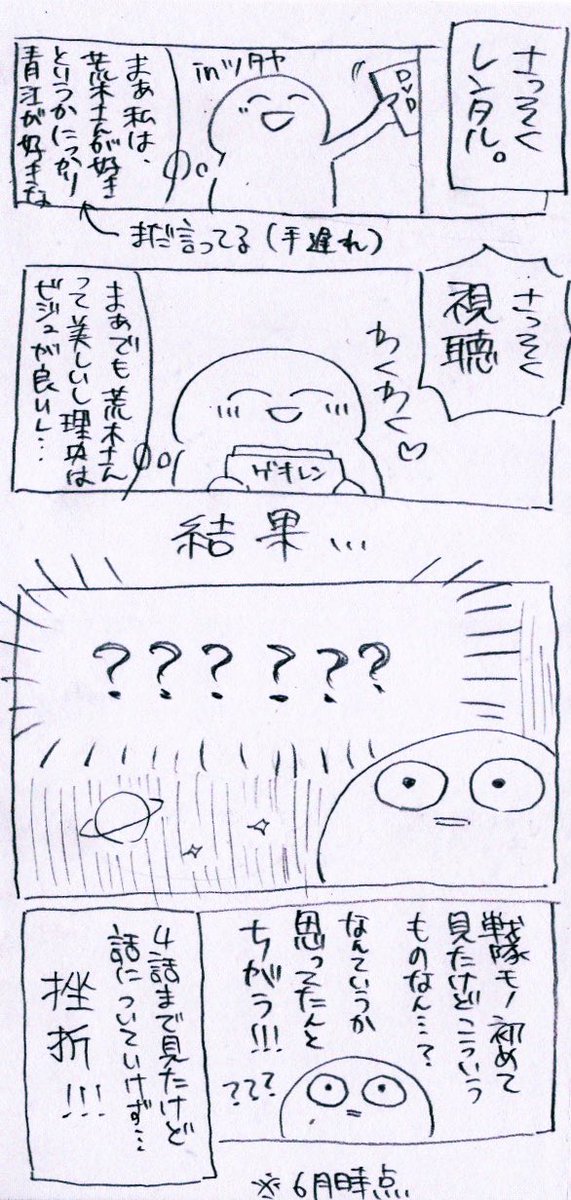 さっそく
レンタル。
inツタヤ
DVD
まぁ私は、
荒木さんが好き
というかにっかり
青江が好きな
まだ言ってる(手遅れ)
さっそく
視聴
わくわく♡
ゲオレン
まぁでも荒木さん
って美しいし理央は
ビジュが良いし…
結果…
??????
戦隊モノ初めて
見たけどこういう
ものなん…?
なんていうか
思ってたんと
ちがう!!!
???
4話まで見たけど
話についていけず…
挫折!!!
※6月時点